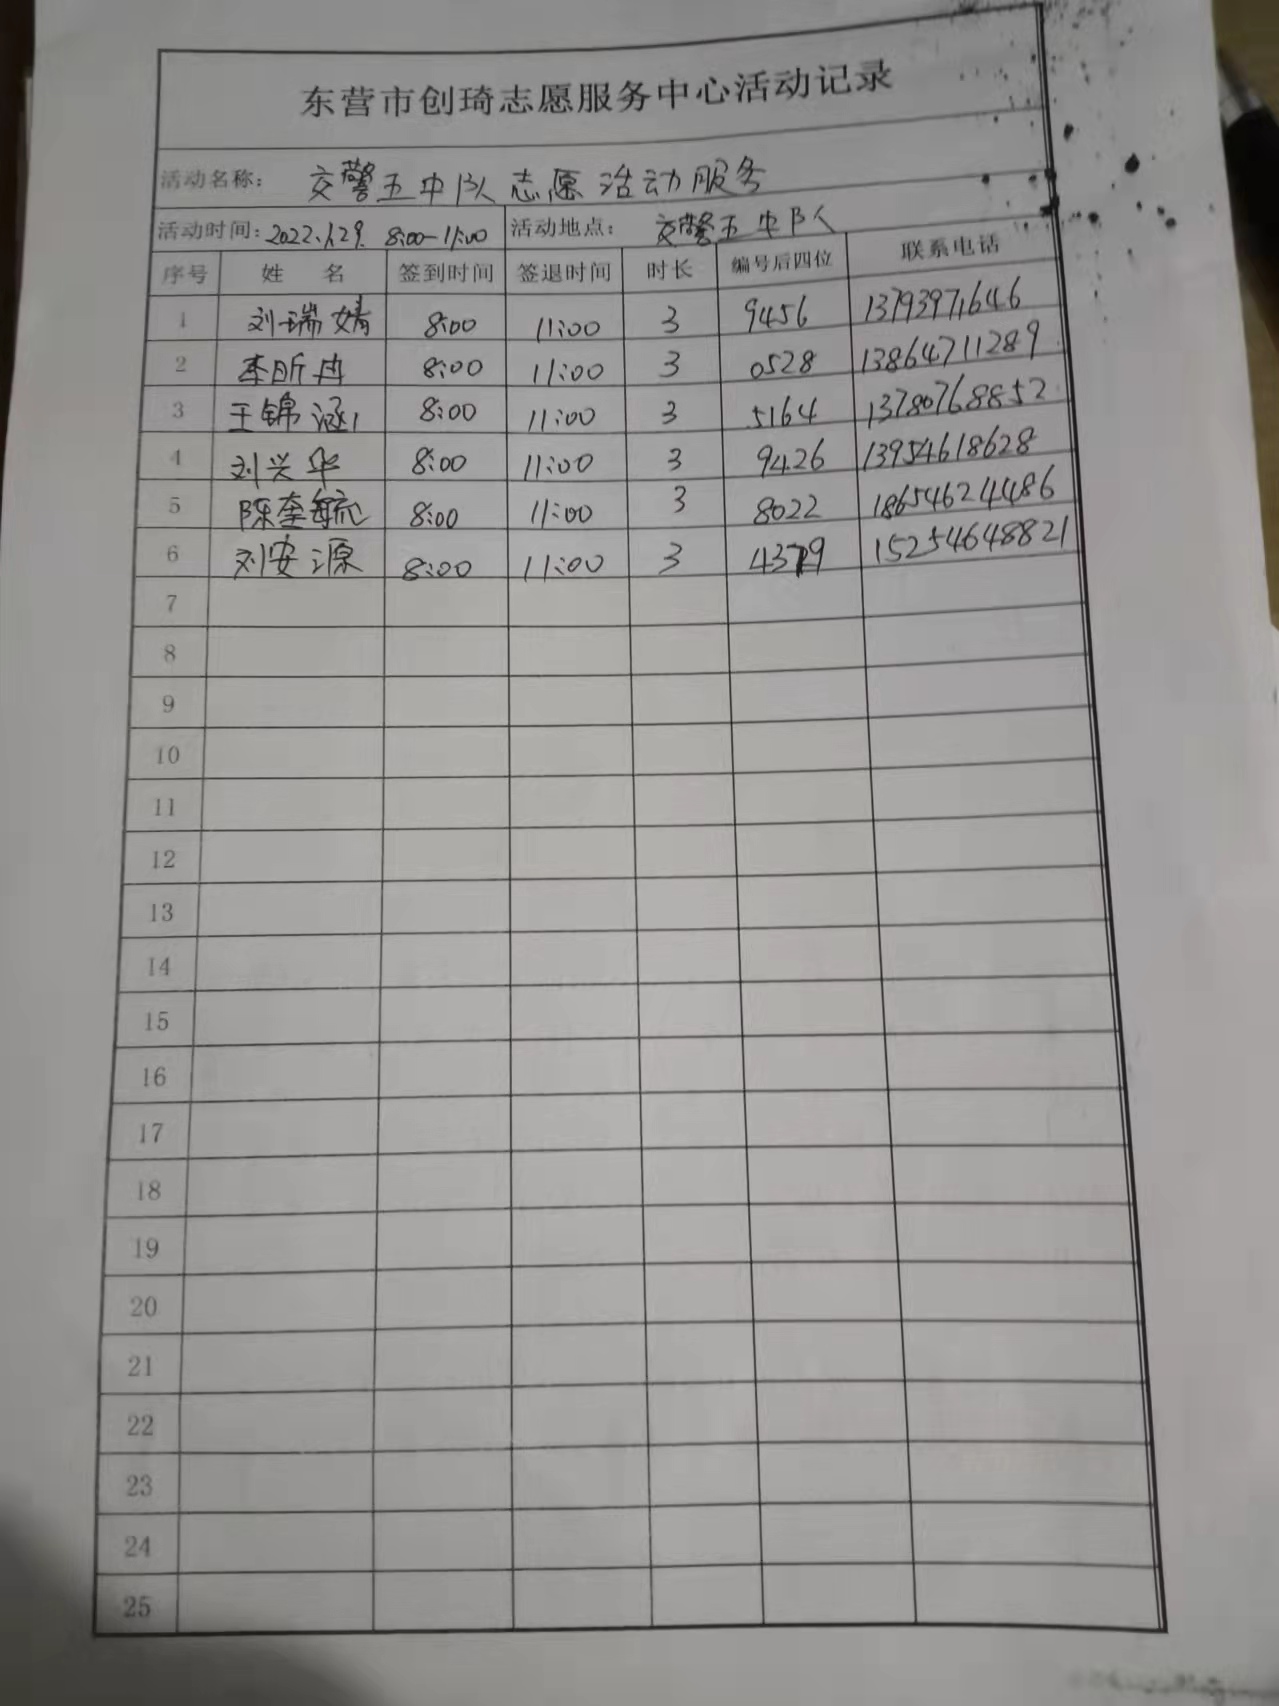 东营市创琦志愿服务中心活动记录
活动名称： 交警五中队志愿活动服务
活动时间：2022.1.29. 8:00-11:00 活动地点： 交警五中队
序号 姓 名 签到时间 签退时间 时长 编号后四位 联系电话
1 刘瑞婧 8:00 11:00 3 9456 13793971646
2 李昕冉 8:00 11:00 3 0528 13864711289
3 王锦涵 8:00 11:00 3 5164 13780768852
4 刘兴华 8:00 11:00 3 9426 13954618628
5 陈奎毓 8:00 11:00 3 8022 18654624486
6 刘安源 8:00 11:00 3 4379 15254648821
7
8
9
10
11
12
13
14
15
16
17
18
19
20
21
22
23
24
25